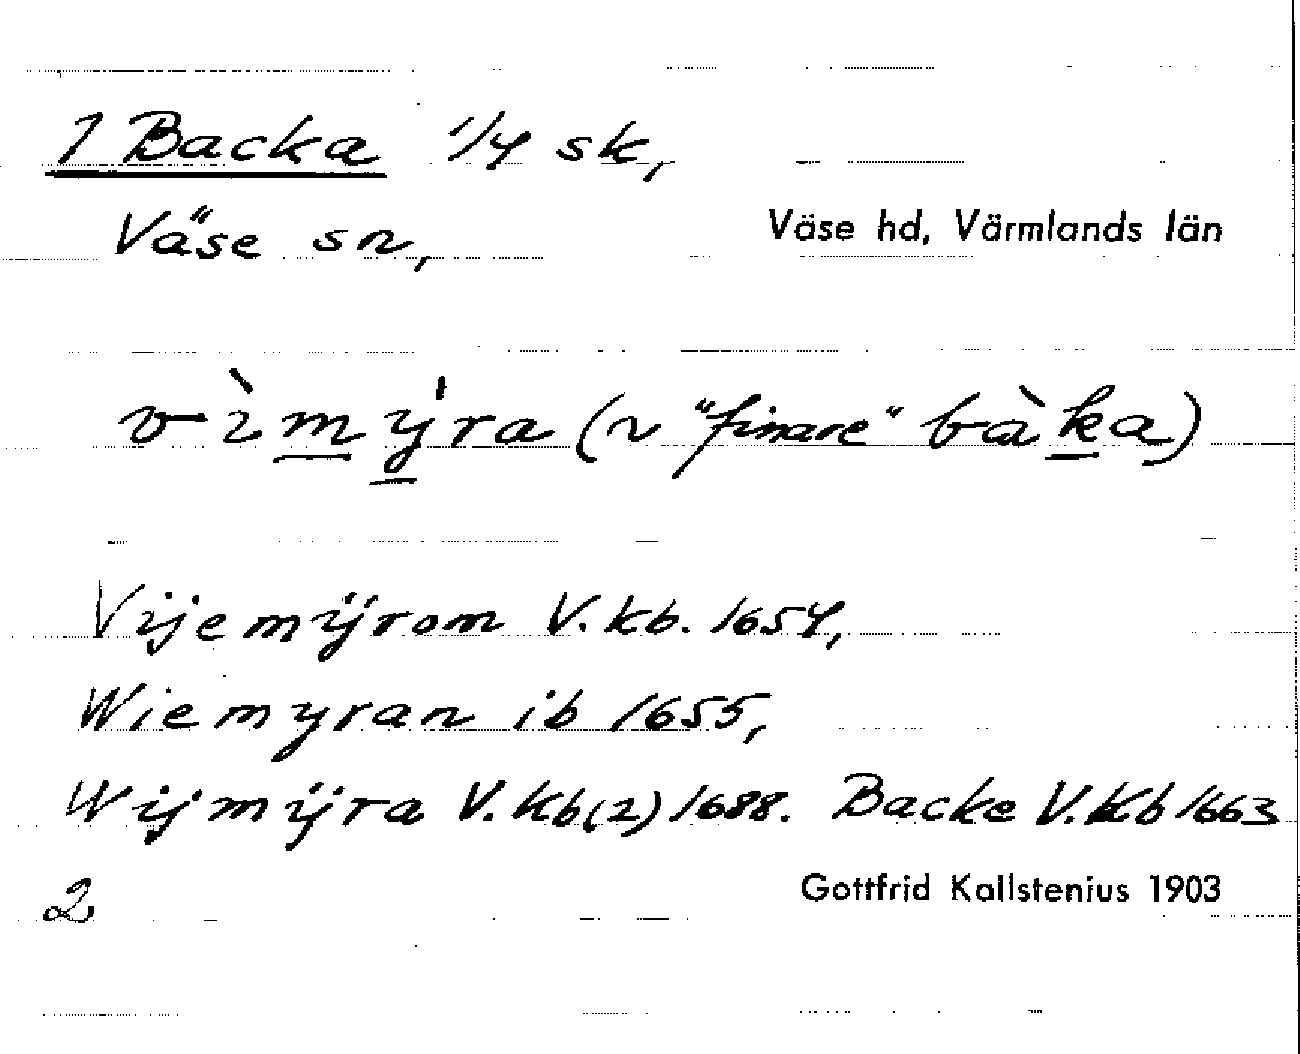 1 Backa 1/4 sk,
Väse sn,
Väse hd, Värmlands län
vìmẏ́ra (n "finare" bàka)
Vijemÿrom V. kb. 1654,
Wiemyran ib 1655,
Wijmÿra V. kb (2) 1688. Backe V. Kb 1663
2
Gottfrid Kallstenius 1903